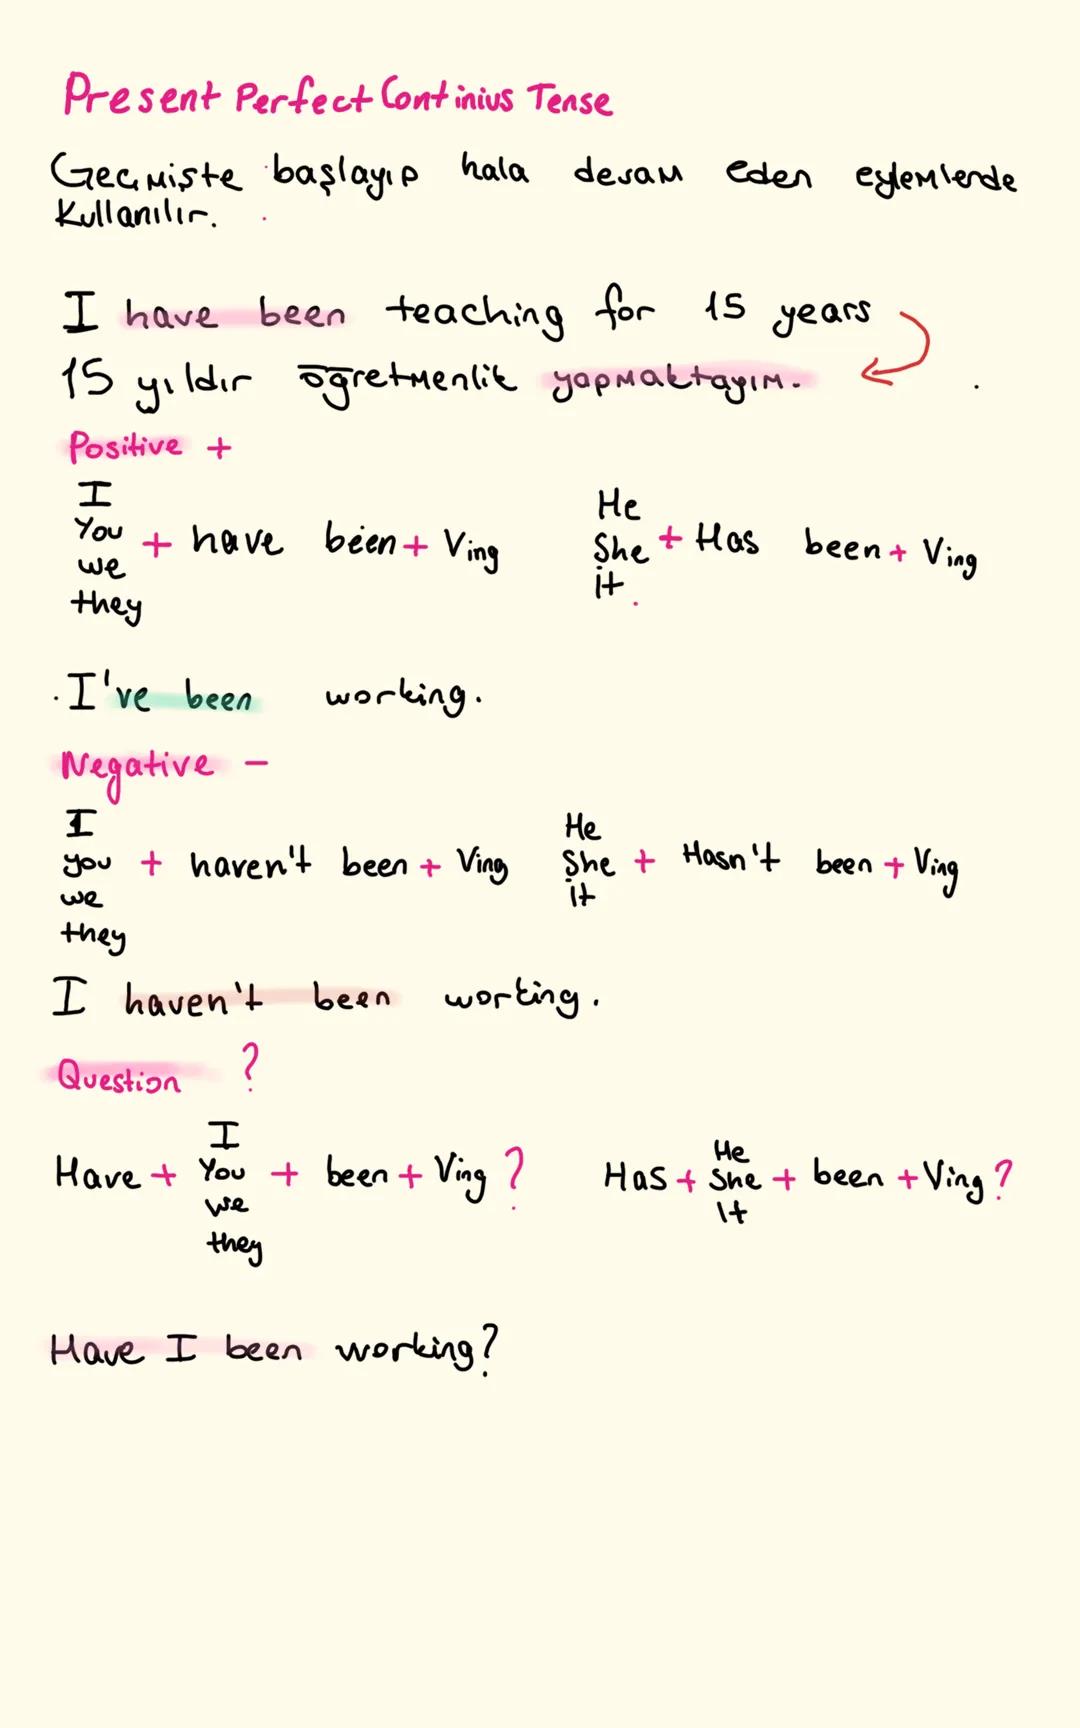 Present Perfect Continius Tense
Geçmişte başlayıp hala devam eden eylemlerde
Kullanılır.
I have been teaching for 15 years
15 yıldır öğretmenlik yapmaktayım.
Positive +
I
You
we
they
+ have been + Ving
He
She
it
+ Has been + Ving
I've been working.
Negative -
I
you
we
they
+ haven't been + Ving
He
She
it
+ Hasn't been + Ving
I haven't been working.
Question ?
Have +
I
You
we
they
+ been + Ving ?
Has +
He
She
It
+ been + Ving ?
Have I been working?